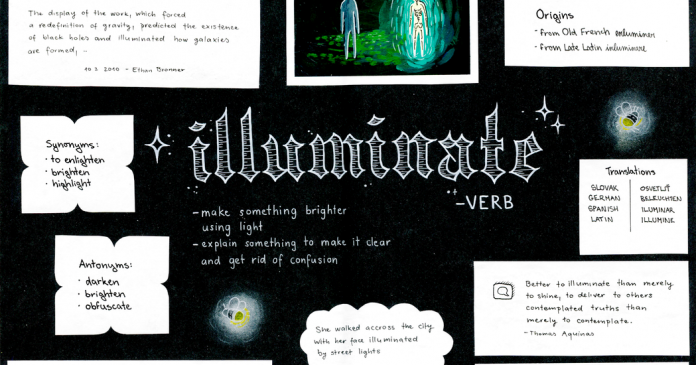 The display of the work, which forced
a redefinition of gravity, predicted the existence
of black holes and illuminated how galaxies
are formed, -
10.2. 2010 - Ethan Bronner
Origins
- from Old French enluminer
- from Late Latin inluminare
Synonyms:
· to enlighten
· brighten
· highlight
illuminate
-VERB
- make something brighter
using light
- explain something to make it clear
and get rid of confusion
Translations
SLOVAK OSVETLIŤ
GERMAN BELEUCHTEN
SPANISH ILUMINAR
LATIN ILLUMINE
Antonyms:
· darken
· brighten
· obfuscate
Better to illuminate than merely
to shine, to deliver to others
contemplated truths than
merely to contemplate.
- Thomas Aquinas
She walked accross the city
with her face illuminated
by street lights